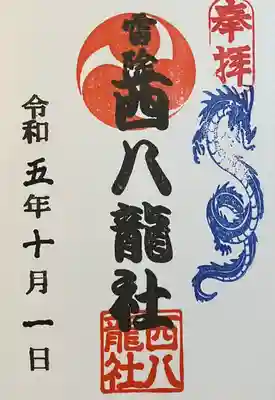 奉拝
雷除
西八龍社
西八龍社
令和五年十月一日